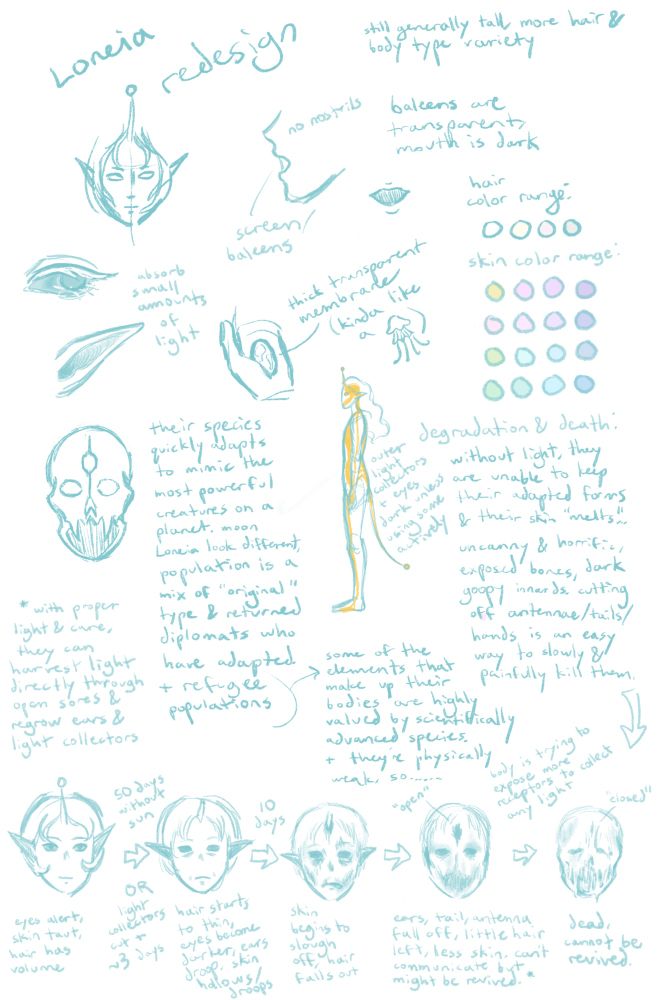 Loneia
redesign
still generally tall, more hair &
body type variety
no nostrils
baleens are
transparent,
mouth is dark
screen/
baleens
hair
color range:
skin color range:
absorb
small
amounts
of
light
thick transparent
membrane
(kinda like
a )
their species
quickly adapts
to mimic the
most powerful
creatures on a
planet. moon
Loneia look different,
population is a
mix of "original"
type & returned
diplomats who
have adapted
+ refugee
populations
outer
light
collectors
+ eyes
dark unless
using some
actively
degradation & death:
without light, they
are unable to keep
their adapted forms
& their skin "melts"...
uncanny & horrific,
exposed bones, dark
goopy innards. cutting
off antennae/tails/
hands is an easy
way to slowly &
painfully kill them.
* with proper
light & care,
they can
harvest light
directly through
open sores &
regrow ears &
light collectors
some of the
elements that
make up their
bodies are highly
valued by scientifically
advanced species.
+ they're physically
weak, so......
body is trying to
expose more
receptors to collect
any light
"open"
"closed"
50 days
without
sun
OR
light
collectors
cut +
~3 days
10
days
eyes alert,
skin taut,
hair has
volume
hair starts
to thin,
eyes become
darker, ears
droop. skin
hallows/
droops
skin
begins to
slough
off, hair
falls out
ears, tail, antenna
fall off, little hair
left, less skin. can't
communicate but
might be revived.*
dead,
cannot be
revived.